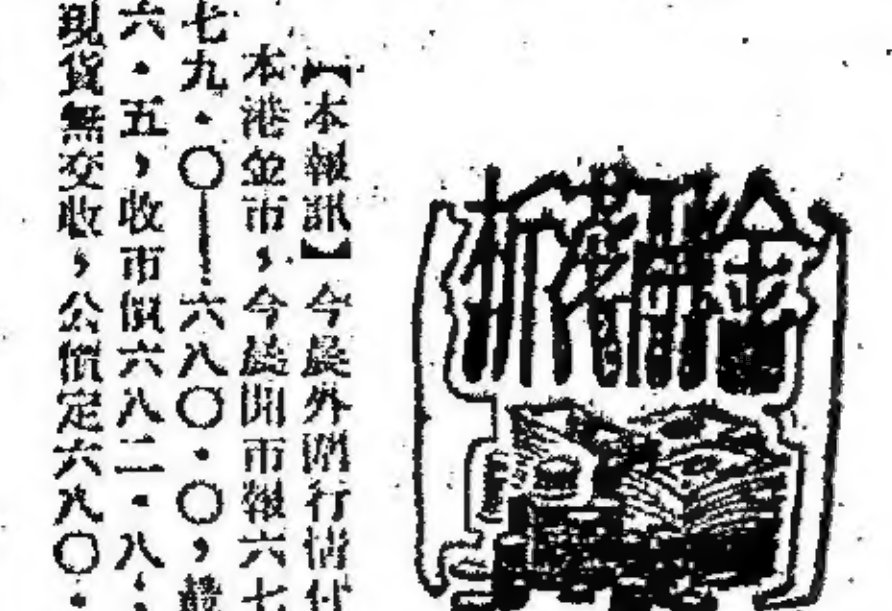 【本報訊】今晨外圍行情付
本港金市，今晨開市報六七
七九·〇——六八〇·〇，
六·五，收市價六八二·八，
現貨無交收，公價定六八〇·